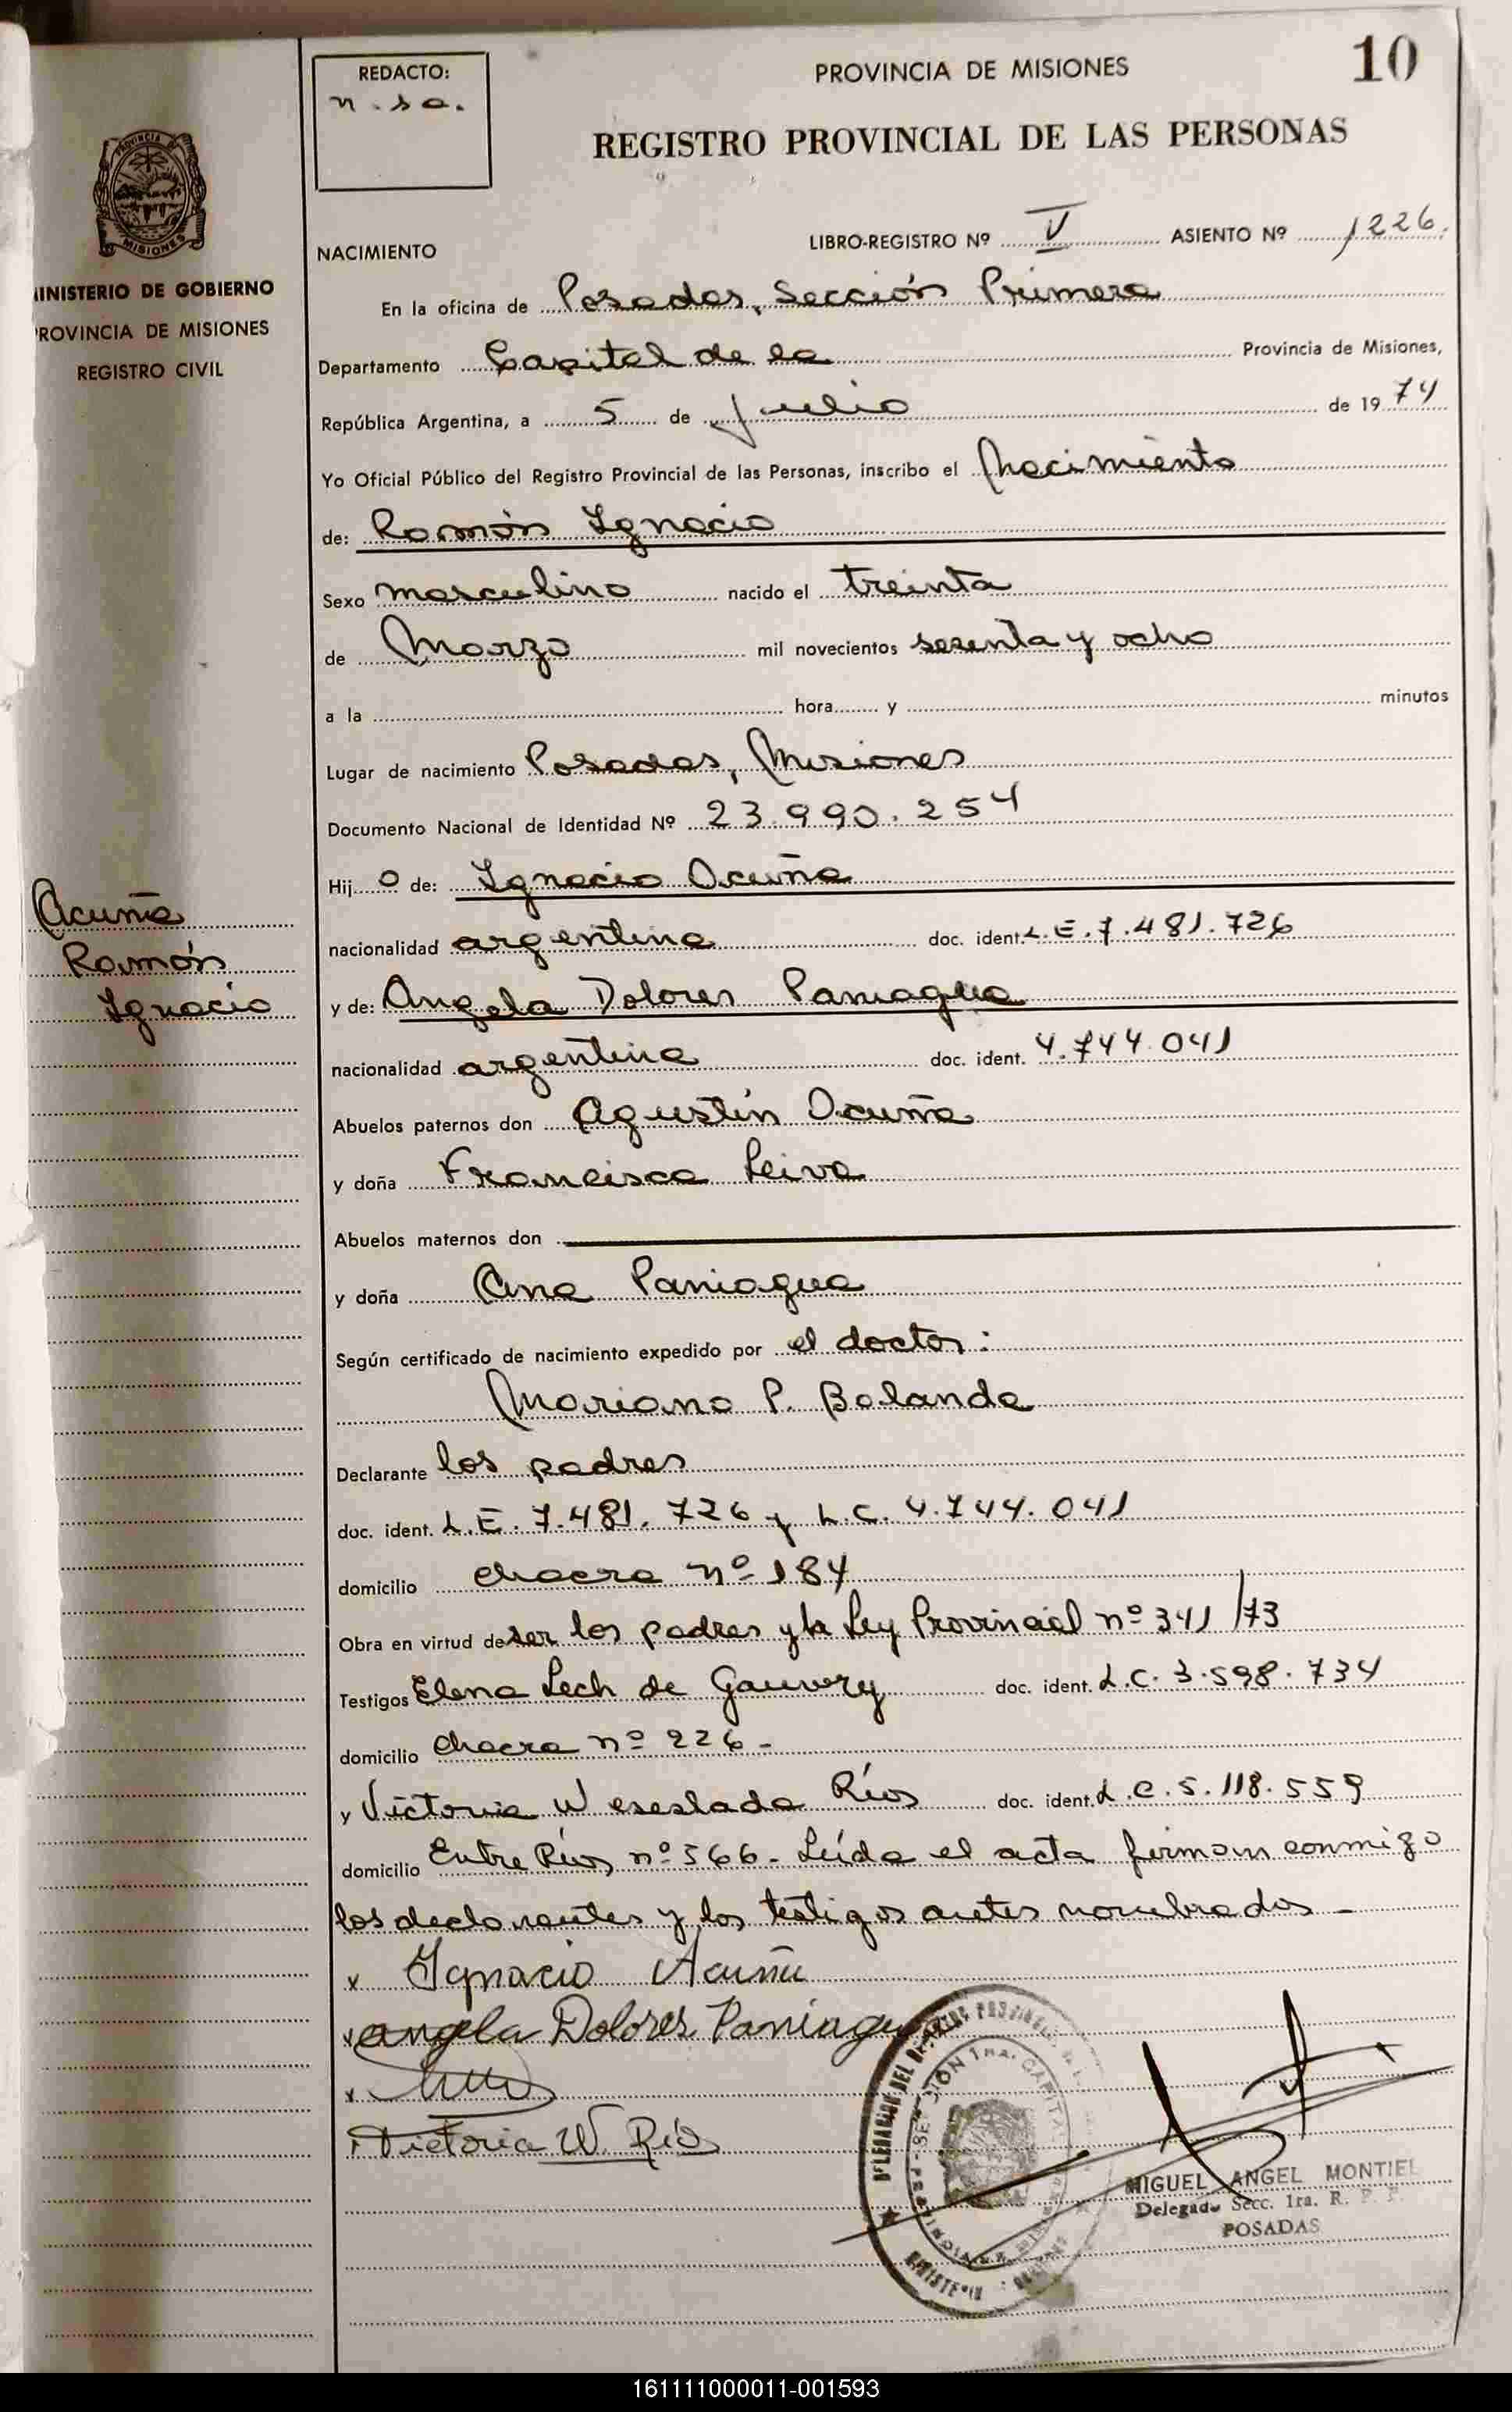 REDACTO:
n.sa.
PROVINCIA DE MISIONES
10
REGISTRO PROVINCIAL DE LAS PERSONAS
PROVINCIA DE
MISIONES
MINISTERIO DE GOBIERNO
PROVINCIA DE MISIONES
REGISTRO CIVIL
NACIMIENTO
LIBRO-REGISTRO Nº V ASIENTO Nº 1226.
En la oficina de Posadas, Sección Primera
Departamento Capital de la Provincia de Misiones,
República Argentina, a 5 de Julio de 1974
Yo Oficial Público del Registro Provincial de las Personas, inscribo el Nacimiento
de: Ramón Ignacio
Sexo masculino nacido el treinta
de Marzo mil novecientos sesenta y ocho
a la hora y minutos
Lugar de nacimiento Posadas, Misiones
Documento Nacional de Identidad Nº 23.990.254
Hijo de: Ignacio Acuña
Acuña
Ramón
Ignacio
nacionalidad argentina doc. ident. L.E. 7.481.726
y de: Angela Dolores Paniagua
nacionalidad argentina doc. ident. 4.744.041
Abuelos paternos don Agustín Acuña
y doña Francisca Leiva
Abuelos maternos don
y doña Ana Paniagua
Según certificado de nacimiento expedido por el doctor:
Mariano P. Balanda
Declarante los padres
doc. ident. L.E. 7.481.726 y L.C. 4.744.041
domicilio chacra nº 184
Obra en virtud de ser los padres y la Ley Provincial nº 341/73
Testigos Elena Lech de doc. ident. L.C. 3.598.734
domicilio Chacra nº 226-
y Victoria Weseslada Ríos doc. ident. L.C. 5.118.559
domicilio Entre Ríos nº 566- Leída el acta firman conmigo
los declarantes y los testigos antes nombrados-
x Ignacio Acuña
x Angela Dolores Paniagua
x
x Victoria W. Ríos
SECCION 1ra. CAPITAL
MIGUEL ANGEL MONTIEL
Delegado Secc. 1ra. R. P. P.
POSADAS
161111000011-001593